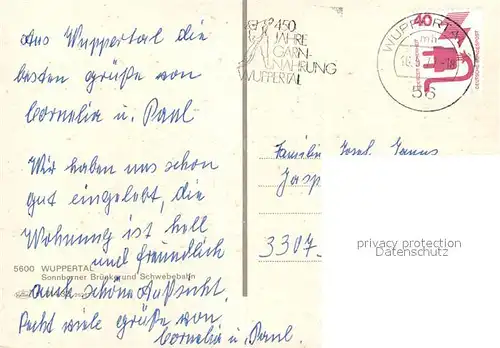 Aus Wuppertal die
besten grüße von
Cornelia u. Paul
Wir haben uns schon
gut eingelebt, die
Wohnung ist hell
und freundlich
auch schöne Aussicht.
Recht viele grüße von
Cornelia u. Paul.
5600 WUPPERTAL
Sonnborner Brücke und Schwebebahn
450
JAHRE
GARN-
NAHRUNG
WUPPERTAL
WUPPERTAL
mh
56
40
DEUTSCHE BUNDESPOST
Familie Josef
3307
privacy protection
Datenschutz